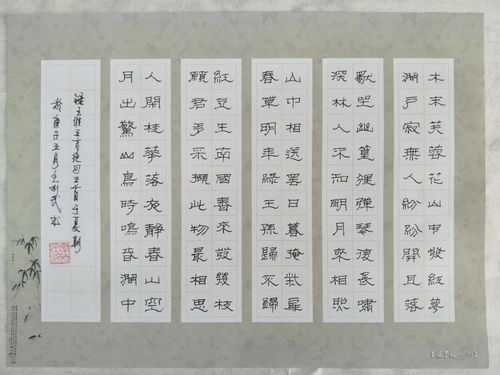 木末芙蓉花山中發紅萼
澗戶寂無人紛紛開且落
獨坐幽篁裡彈琴復長嘯
深林人不知明月來相照
山中相送罷日暮掩柴扉
春草明年綠王孫歸不歸
紅豆生南國春來發幾枝
願君多采擷此物最相思
人閒桂華落夜靜春山空
月出驚山鳥時鳴春澗中
錄王維五言絕句五首于夏
庚子五月